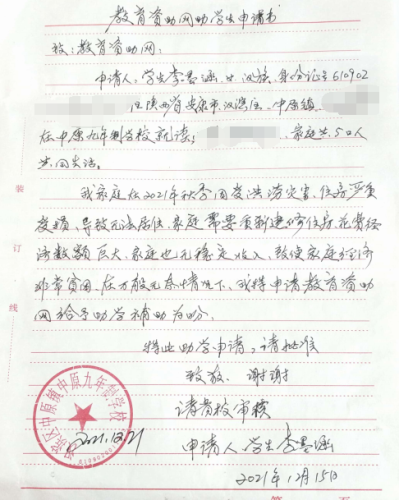 教育资助网助学生申请书
致：教育资助网：
申请人：学生李思涵 女 汉族 身份证号610902
住陕西省安康市汉滨区，中原镇
在中原九年制学校就读， 家庭共5口人
共同生活。
我家庭在2021年秋季因受洪涝灾害，住房严重
受损，导致无法居住，家庭需要重新建修住房，花费经
济数额巨大，家庭也无稳定收入，致使家庭经济
非常贫困，在万般无奈情况下，我特申请教育资助
网给予助学补助为盼。
特此助学申请，请批准
致敬，谢谢
请贵校审核
申请人 学生李思涵
2021年12月15日
汉滨区中原镇中原九年制学校
2021.12.21
装
订
线